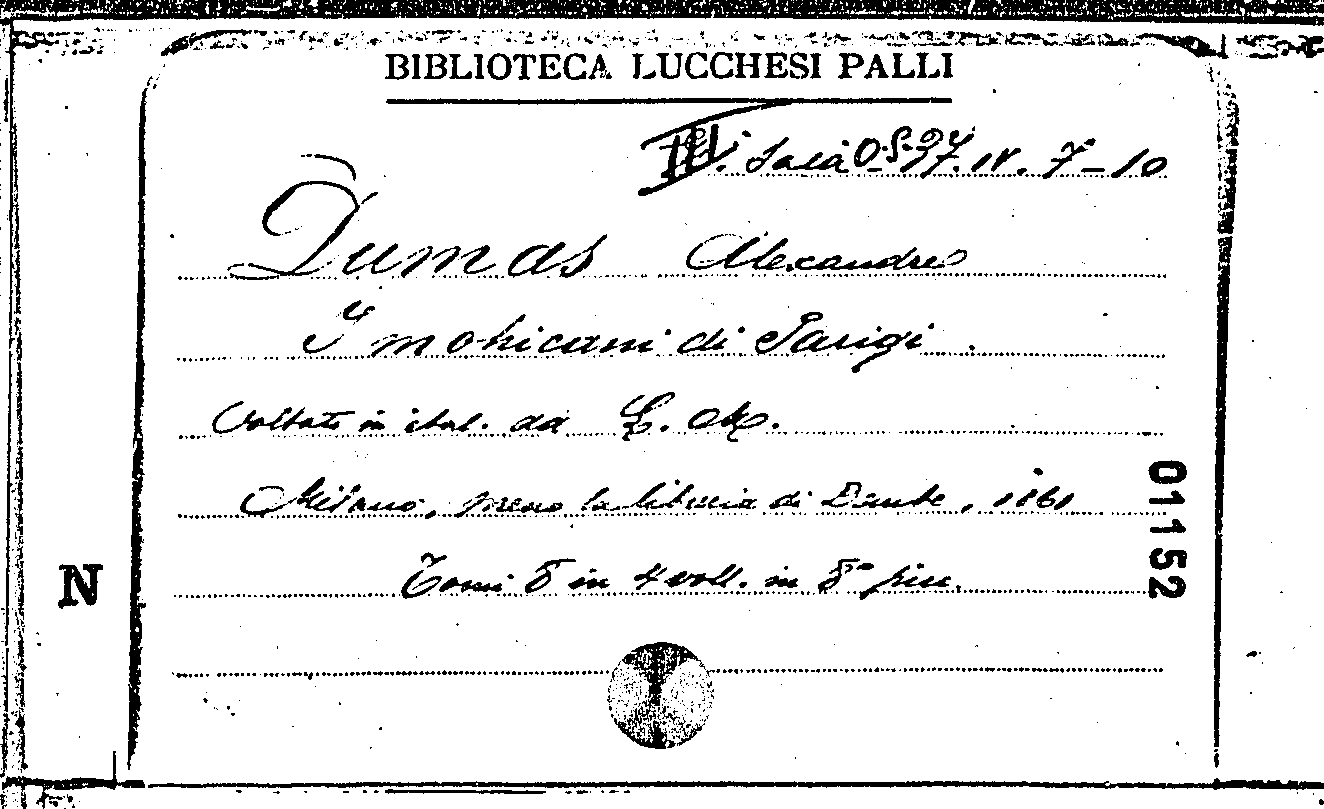 BIBLIOTECA LUCCHESI PALLI
III. Sala 37. IV. 7-10
Dumas Alexandre
I mohicani di Parigi.
Voltati in ital. da L. M.
Milano, presso la libreria di Dante, 1861
Tomi 8 in 4 voll. in 8° picc.
N
01152